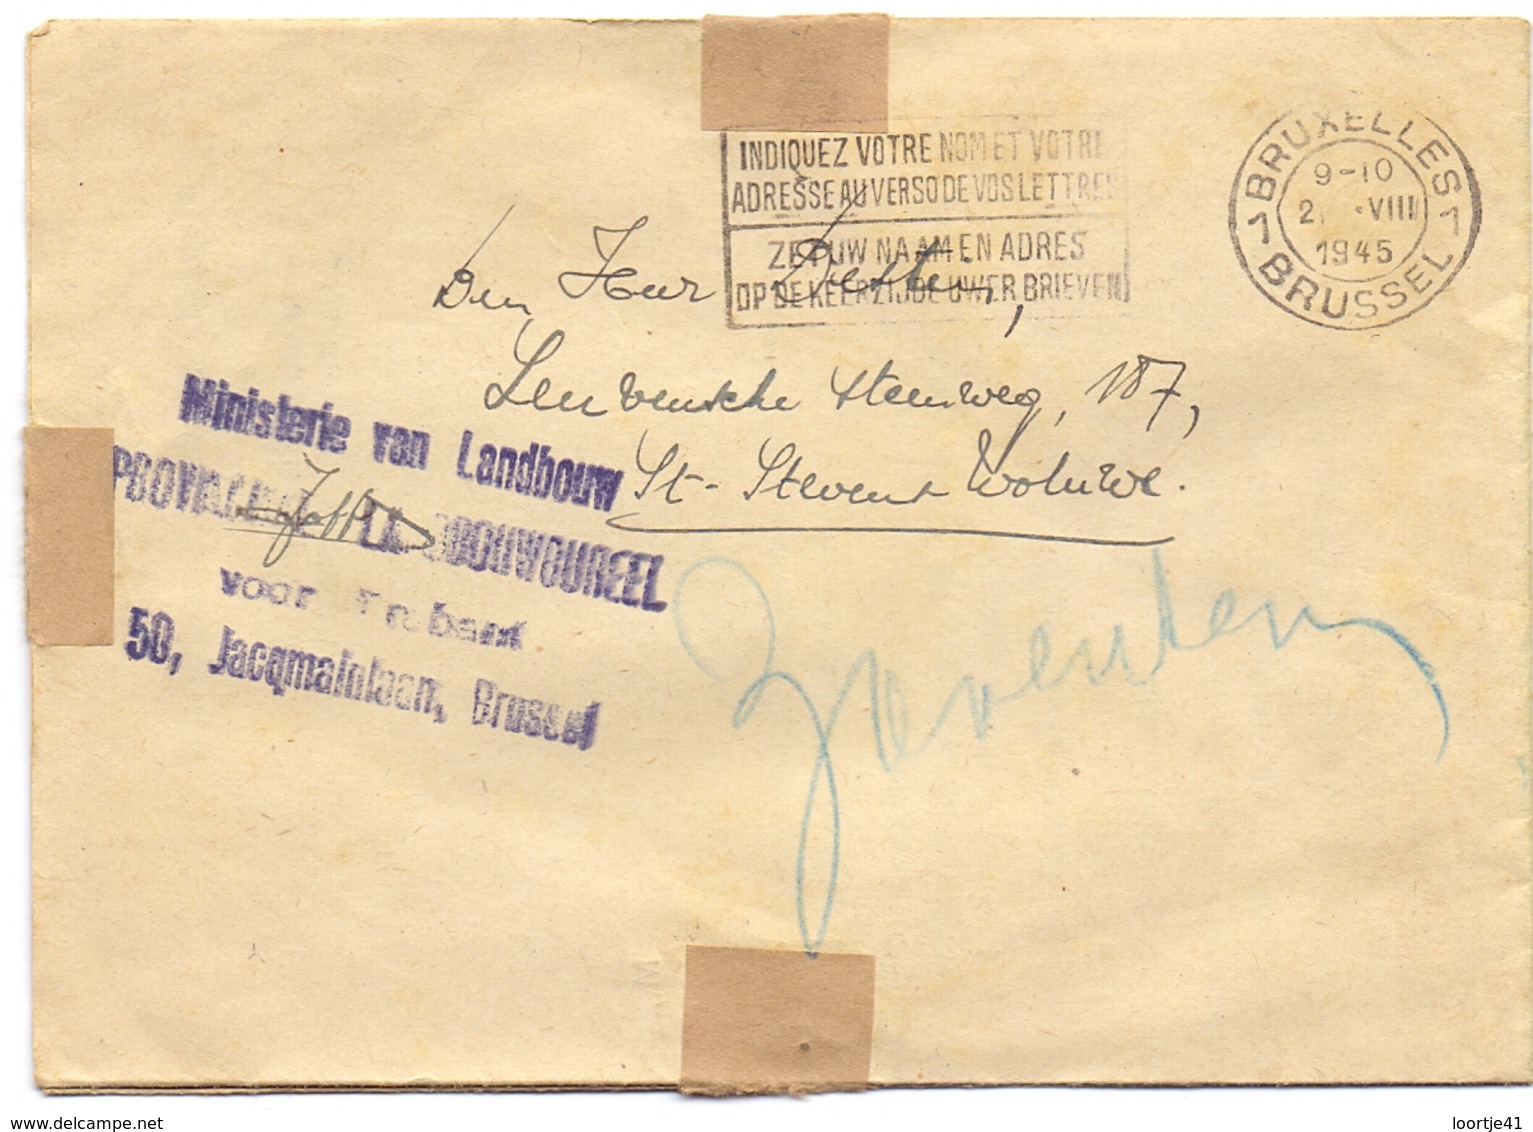 INDIQUEZ VOTRE NOM ET VOTRE
ADRESSE AU VERSO DE VOS LETTRES
ZET UW NAAM EN ADRES
OP DE KEERZIJDE UWER BRIEVEN
BRUXELLES
9-10
VIII
1945
1 1
BRUSSEL
Den Heer
Leuvensche steenweg, 187,
St-Stevens Woluwe.
Ministerie van Landbouw
voor
50, Jacqmainlaan, Brussel
Zaventem
www.delcampe.net
loortje41